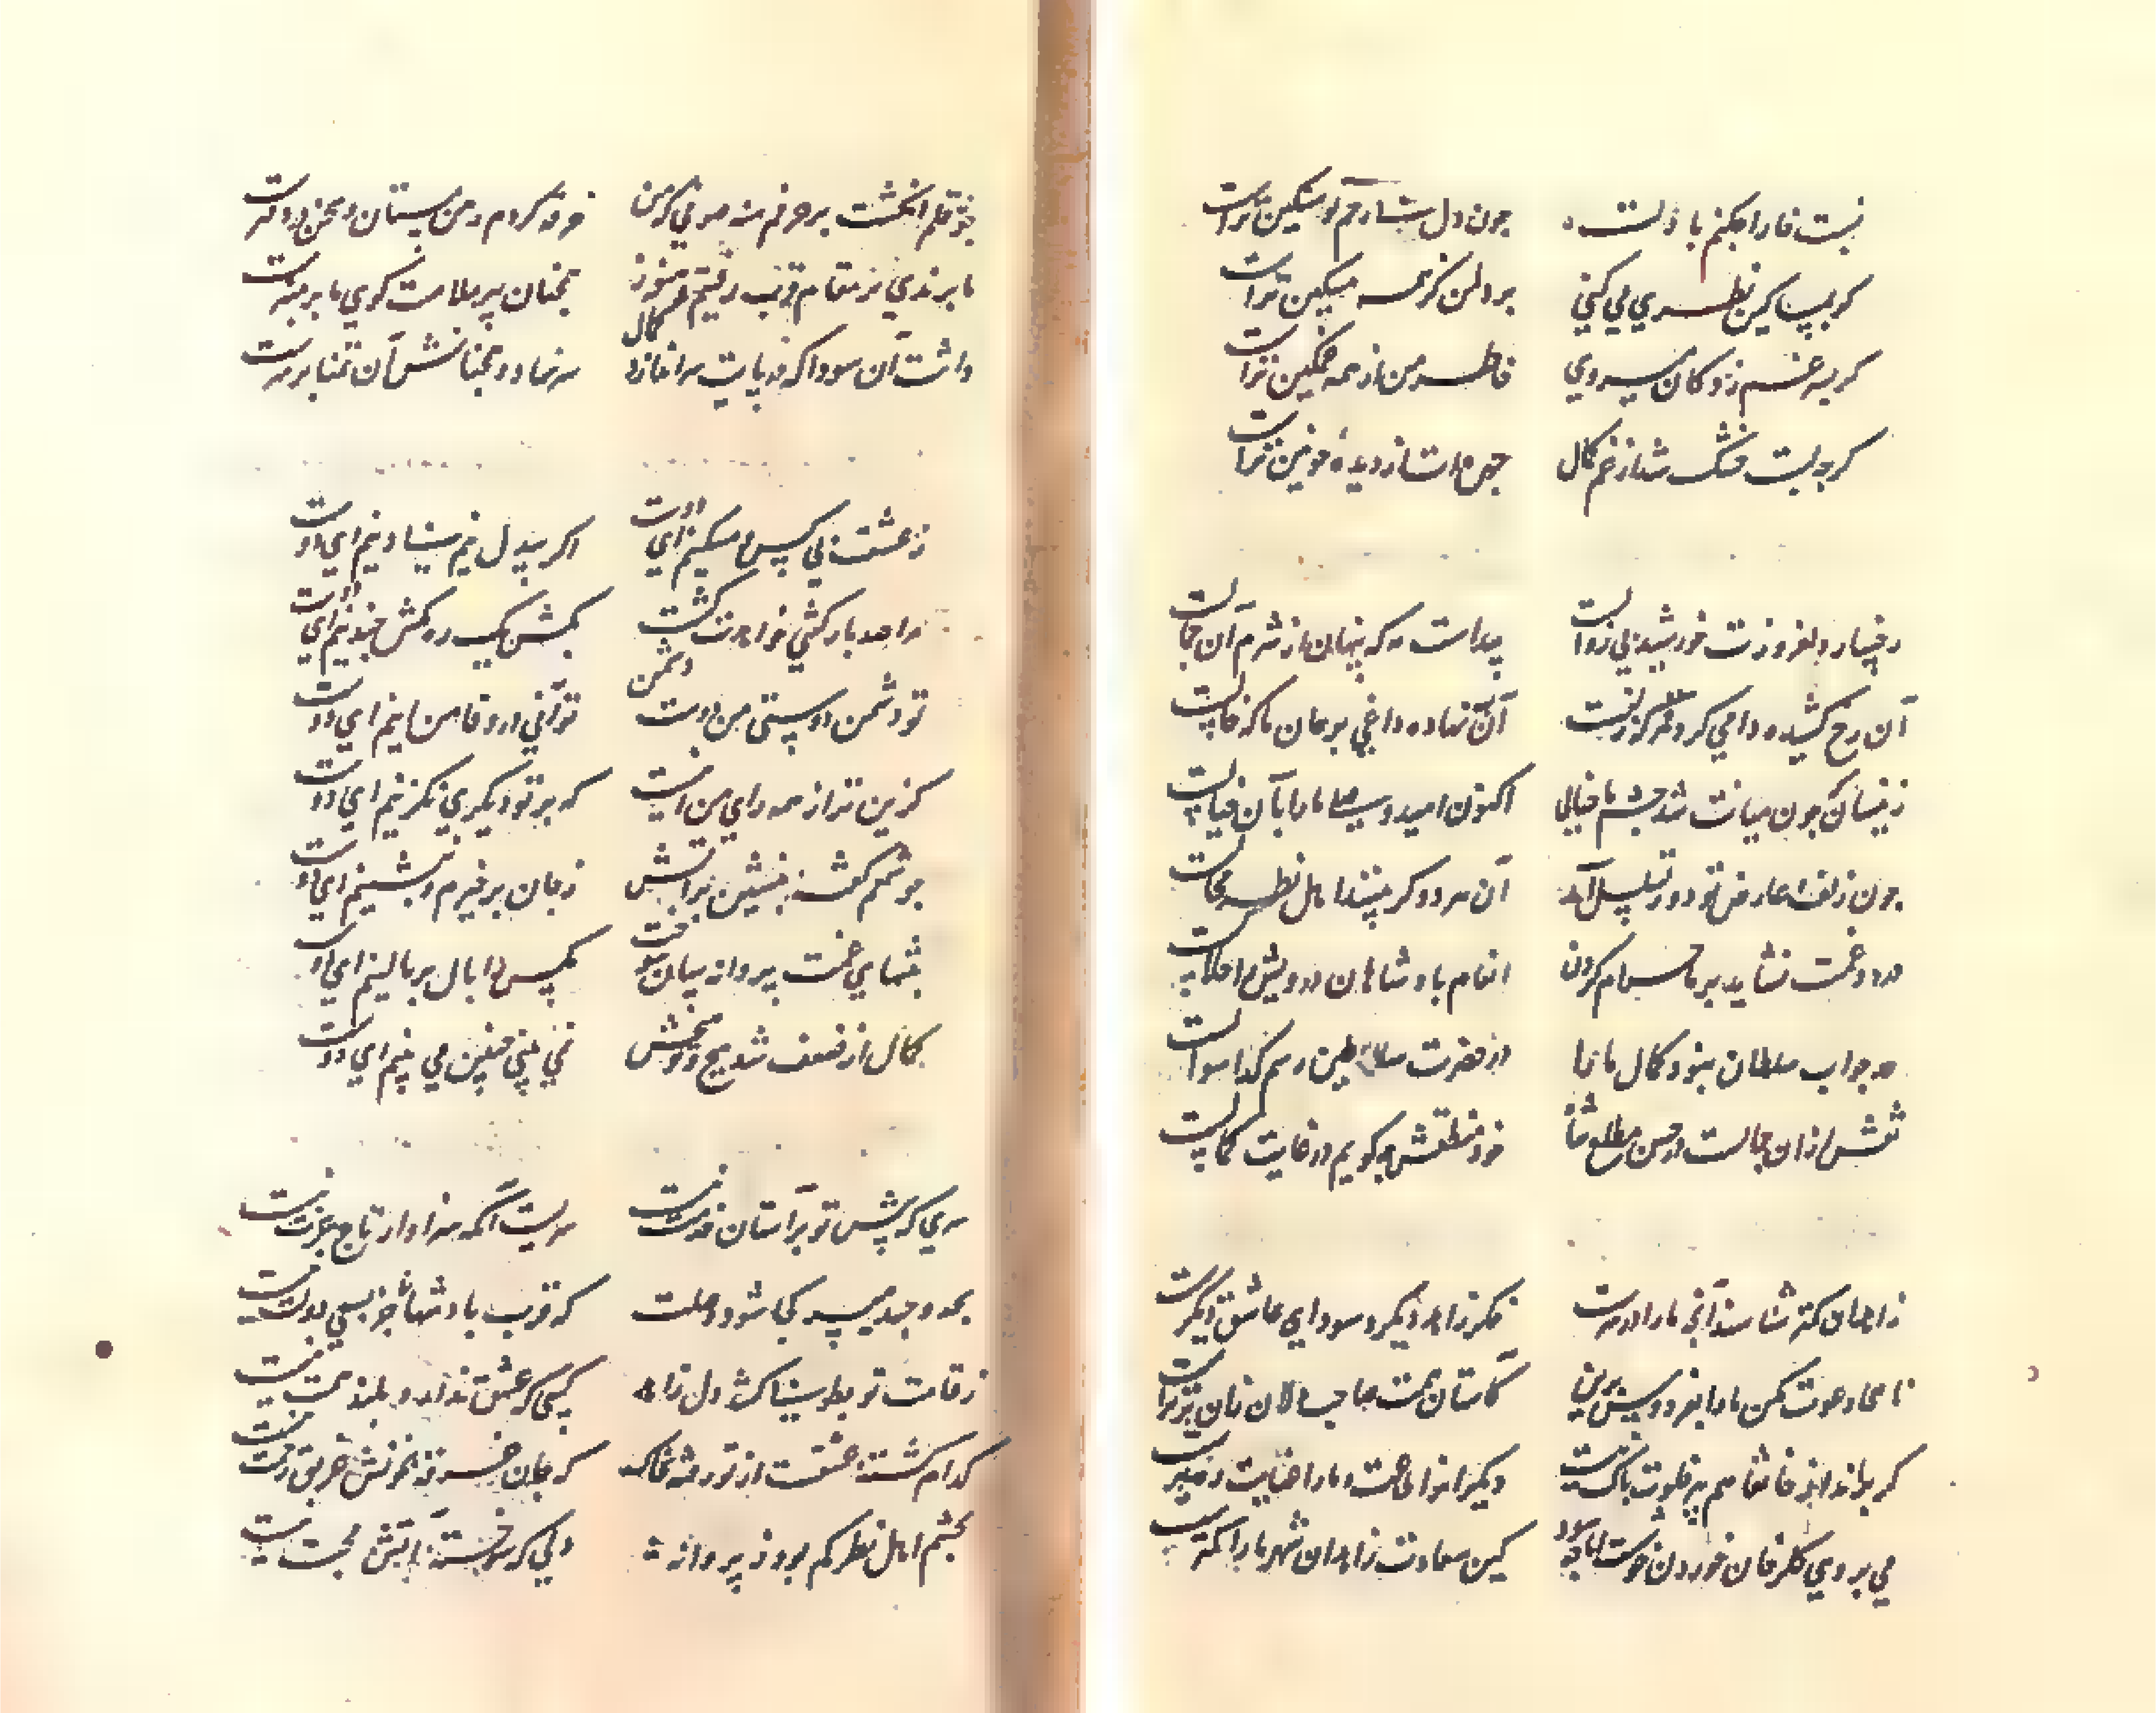 نسبت خارا چکنم با دلت چون دل سنگین تراست
گر بسیاکین نظری می کنی بر دل من کن که مسکین تراست
گر بسر غم زدگان میروی خاطر من از همه غمگین تراست
گرچه لبت خشک شد از غم کمال چهره است از دیده خونین تراست
رخسار دلفروزت خورشید بی زوالست پیداست مه که پنهان از شرم آن جمالست
آن رخ کشیده دامی کرد آن نهاده داغی بر جان ما که خالست
زینسان که چون میانت شد جسم ما خیالی اکنون امید وصلت ما را بآن خیالست
چون زلف و عارض تو دور تسلسل آمد آن هر دو گر ببینند اهل نظر محالست
درد و غمت نشاید بر ما حرام کردن انعام پادشاهان درویش را حلالست
در جواب سلطان بنود کمال ما را از حضرت سلاطین رسم گدا سوالست
نقش از آن جمالت در حسن مطلع ما خود منطقش چه گویم در غایت کمالست
زاهدان کمتر شناسند آنچ ما را در سرست فکر زاهد دیگر و سودای عاشق دیگرست
ناصحا دعوت مکن ما را بفردوس برین کآستان همت صاحب دلان زان برترست
گر براند از خانقاهم پیر خلوت باک نیست دیگران را طاعت و ما را عنایت رهبرست
می بروی گلرخان خوردن خوشست اما چه سود کین سعادت زاهدان شهر ما را کمترست
چو قلم انگشت بر حرفم منه صوفی که من خرقه کردم رهن مستان و سخن در دفترست
ما برندی در مقام قرب رفتیم و هنوز همچنان پیر ملامت گوی ما بر منبرست
داشت آن سودا که در پایت سر اندازد کمال سر نهاد و همچنانش آن تمنا بر سرست
ز عشقت بی کس و مسکینم ای دوست اگر بیدل نیم بی دینم ای دوست
مرا صد بار کشی خواهدت کشت بکش یک ره مکش چندینم ای دوست
تو دشمن دوستی من دوست دشمن تو آنی در وفا من اینم ای دوست
گزین تو از همه رای من اینست که بر تو دیگری نگزینم ای دوست
چو شمعم گفته بنشین بر آتش ز جان برخیزم و بنشینم ای دوست
بشبهای غمت پروانه سان سوخت مگس را بال بر بالینم ای دوست
کمال از ضعف شد هیچ و تو هیچش نمی بینی چنین می بینم ای دوست
سری که پیش تو بر آستان خدمت نیست سریست آنکه سزاوار تاج عزت نیست
بجد و جهد میسر کجا شود وصلت که قرب پادشهان جز بسعی دولت نیست
ز قامت تو بطوبی کشد دل زاهد کسی که عشق نداند بلند همت نیست
کدام کشته عشقت از تو در ته خاک که جان خسته بخونش غریق رحمت نیست
بچشم اهل نظر کم بود ز پروانه دلی که سوخته آتش محبت نیست